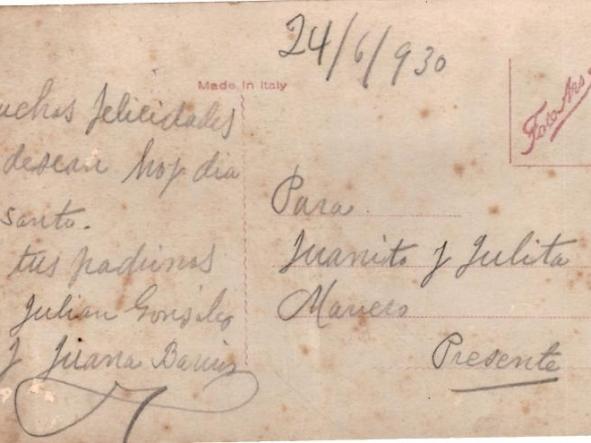 24/6/930
Made in Italy
uchas felicidades
desean hoy dia
santo.
tus padrinos
Julian Gonsales
y Juana
Para
Juanito y Julita
Presente